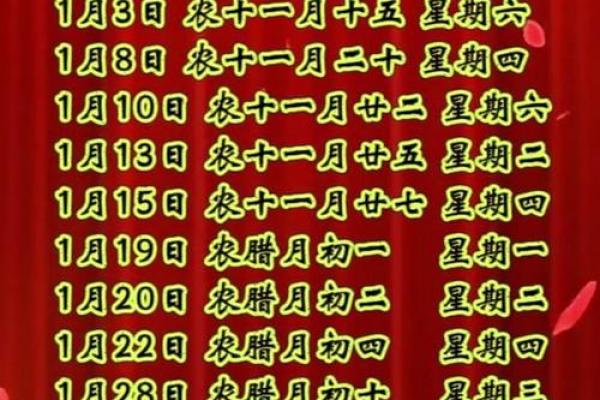 1月3日 农十一月十五 星期六
1月8日 农十一月二十 星期四
1月10日 农十一月廿二 星期六
1月13日 农十一月廿五 星期二
1月15日 农十一月廿七 星期四
1月19日 农腊月初一 星期一
1月20日 农腊月初二 星期二
1月22日 农腊月初四 星期四
1月28日 农腊月初十 星期三